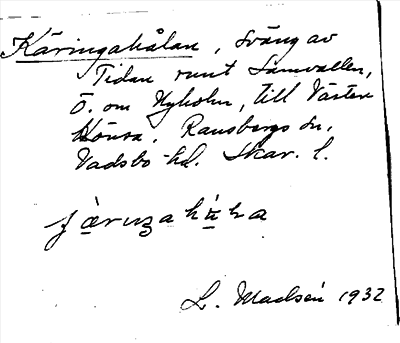 Käringahålan, sväng av
Tidan runt Samvallen,
Ö. om Nyholm, till Västra
Hönsa. Ransbergs sn,
Vadsbo hd. Skar. l.
L. Madsén 1932